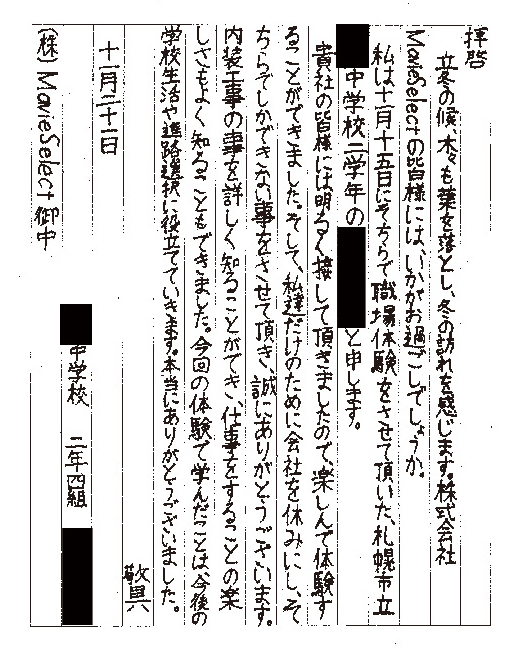 拝啓
立冬の候、木々も葉を落とし、冬の訪れを感じます。株式会社
MovieSelectの皆様には、いかがお過ごしでしょうか。
私は十一月十五日にそちらで職場体験をさせて頂いた、札幌市立
中学校二学年の と申します。
貴社の皆様には明るく接して頂きましたので、楽しんで体験す
ることができました。そして、私達だけのために会社を休みにし、そ
ちらでしかできない事をさせて頂き、誠にありがとうございます。
内装工事の事を詳しく知ることができ、仕事をすることの楽
しさもよく知ることもできました。今回の体験で学んだことは今後の
学校生活や進路選択に役立てていきます。本当にありがとうございました。
敬具
十一月二十一日
中学校 二年四組
(株)MovieSelect 御中